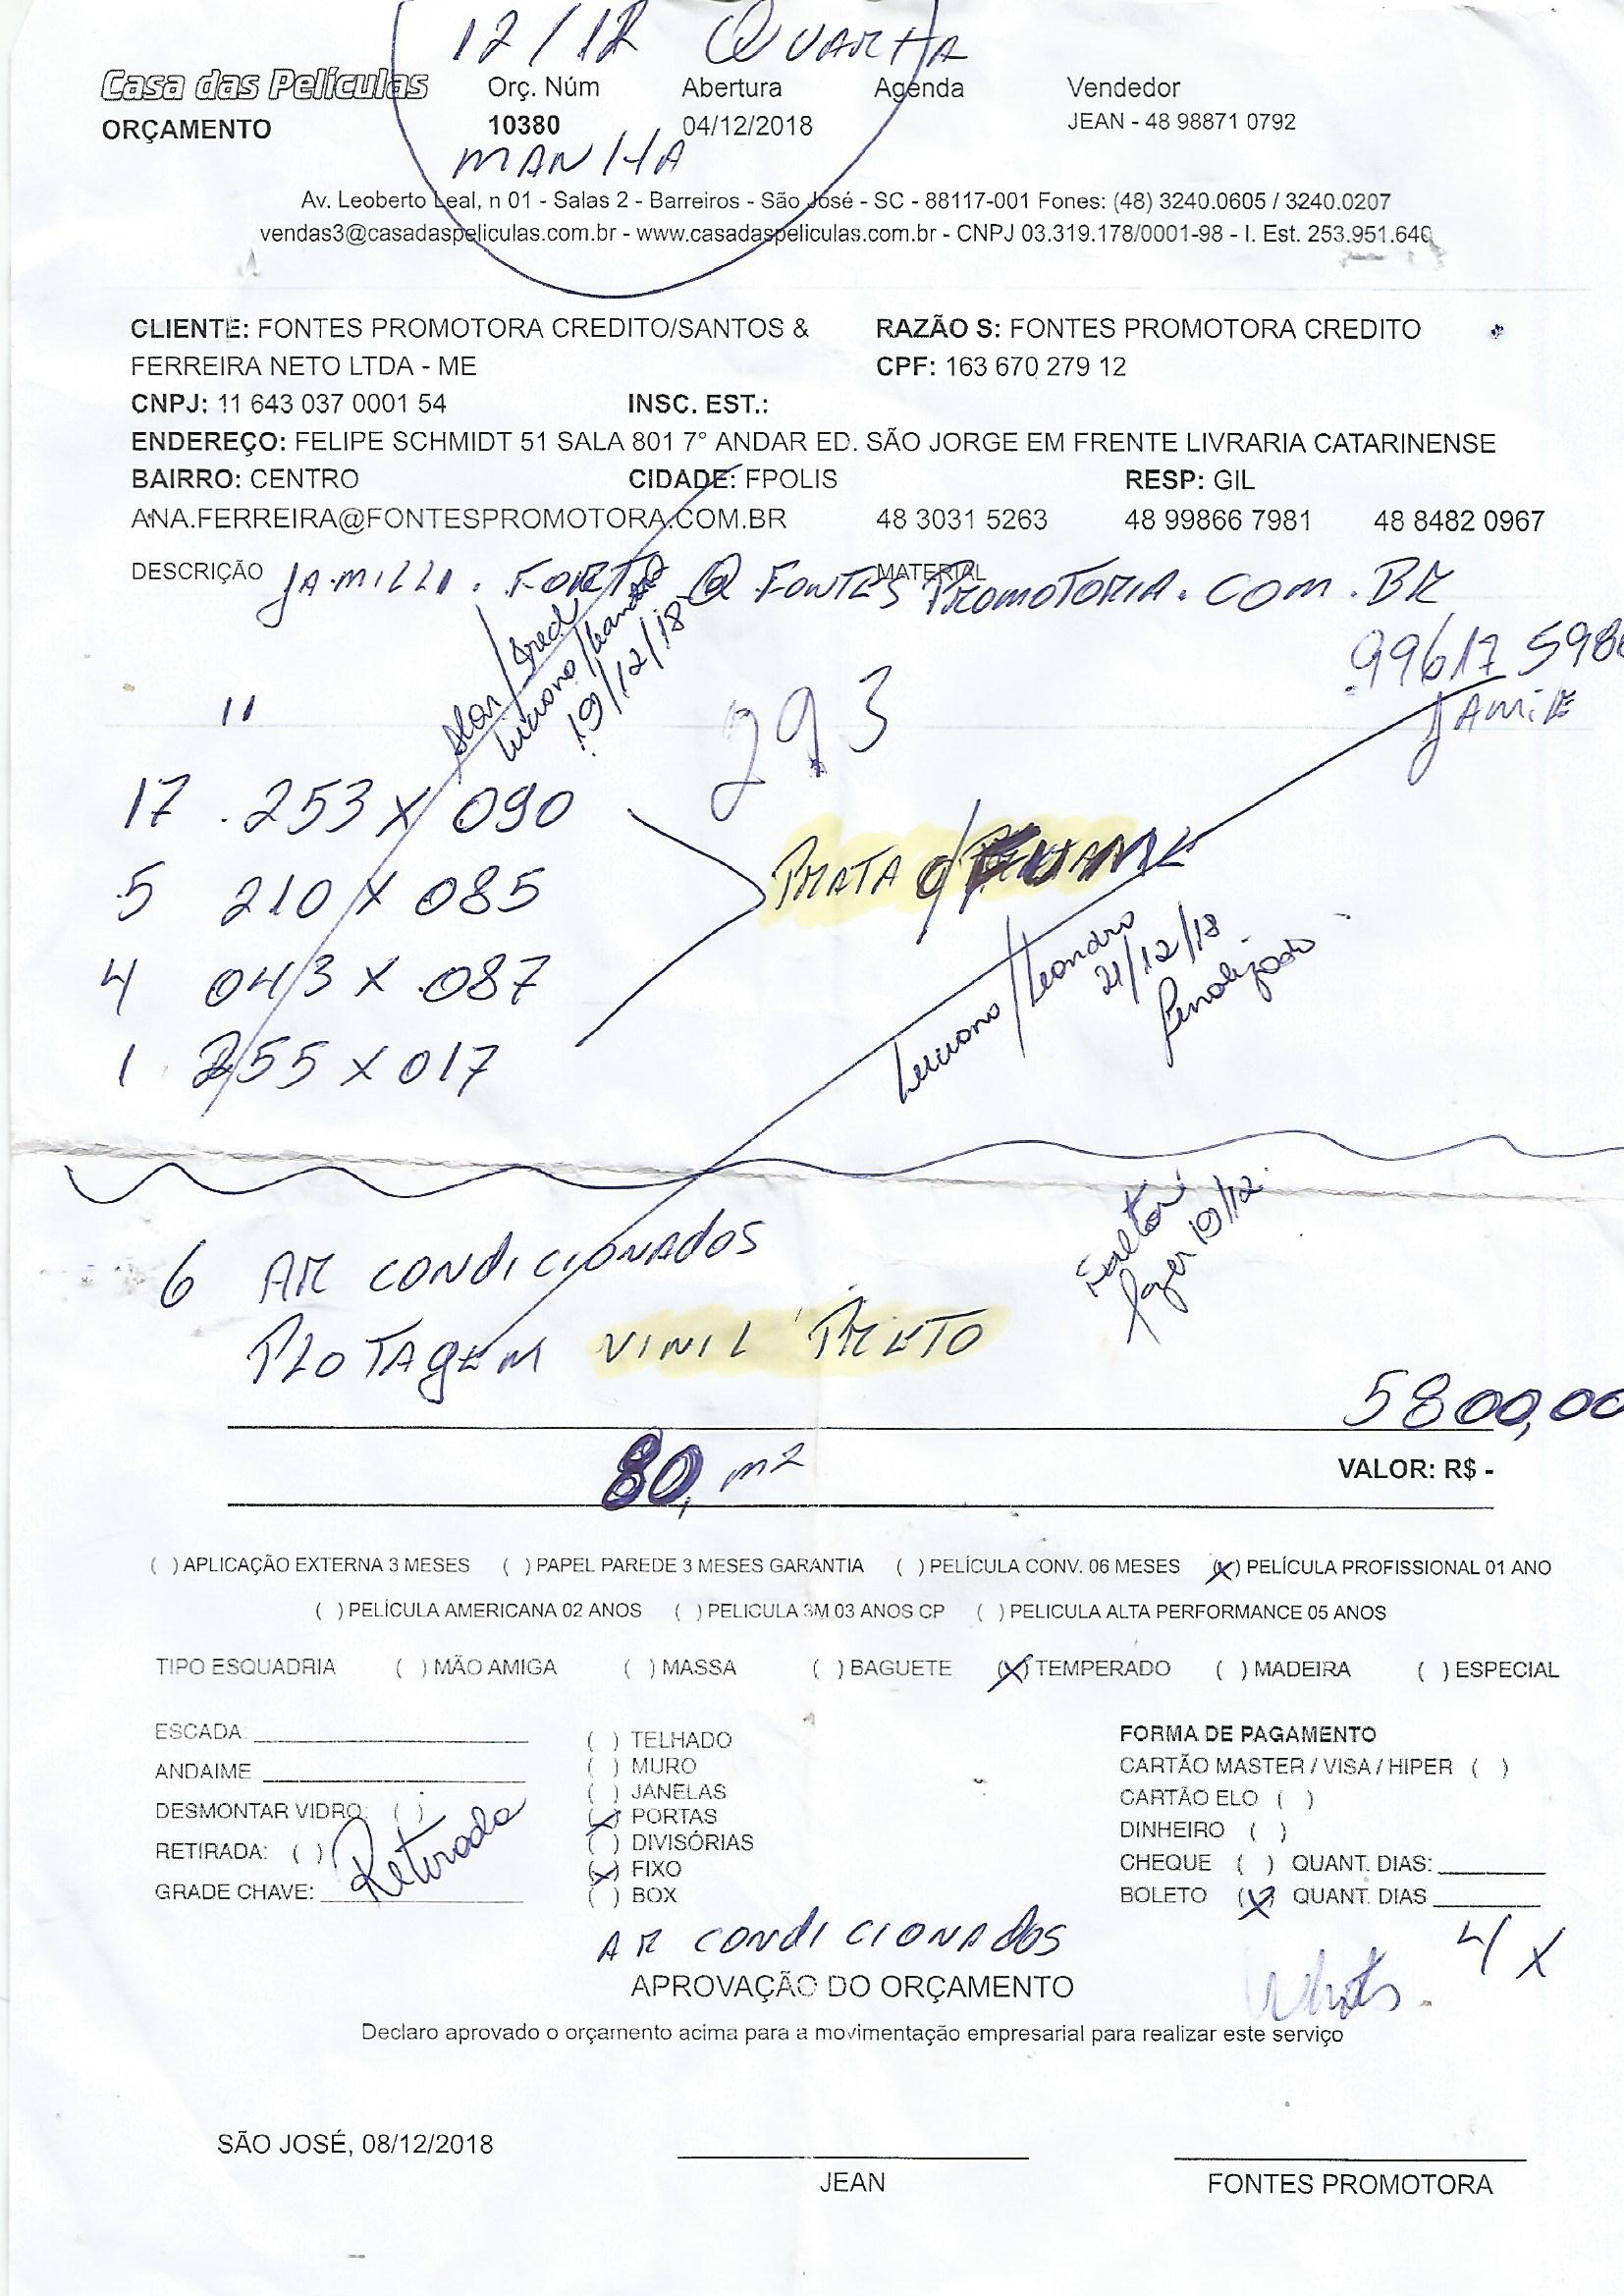 12/12 QUARTA
Casa das Películas Orç. Núm Abertura Agenda Vendedor
ORÇAMENTO 10380 04/12/2018 JEAN - 48 98871 0792
MANHA
Av. Leoberto Leal, n 01 - Salas 2 - Barreiros - São José - SC - 88117-001 Fones: (48) 3240.0605 / 3240.0207
vendas3@casadaspeliculas.com.br - www.casadaspeliculas.com.br - CNPJ 03.319.178/0001-98 - I. Est. 253.951.640
CLIENTE: FONTES PROMOTORA CREDITO/SANTOS & RAZÃO S: FONTES PROMOTORA CREDITO
FERREIRA NETO LTDA - ME CPF: 163 670 279 12
CNPJ: 11 643 037 0001 54 INSC. EST.:
ENDEREÇO: FELIPE SCHMIDT 51 SALA 801 7° ANDAR ED. SÃO JORGE EM FRENTE LIVRARIA CATARINENSE
BAIRRO: CENTRO CIDADE: FPOLIS RESP: GIL
ANA.FERREIRA@FONTESPROMOTORA.COM.BR 48 3031 5263 48 99866 7981 48 8482 0967
DESCRIÇÃO MATERIAL
@FONTESPROMOTORIA.COM.BR
99617 598
JAMILE
Luciano/Leandro
19/12/18
293
17 .253 X 090
5 210 X 085
4 043 X 087
1 255 X 017
PRATA
Luciano/Leandro
21/12/18
Finalizado
6 AR CONDICIONADOS
PLOTAGEM VINIL PRETO
Faltou
fazer 19/12
5800,00
80, m2
VALOR: R$ -
( ) APLICAÇÃO EXTERNA 3 MESES ( ) PAPEL PAREDE 3 MESES GARANTIA ( ) PELÍCULA CONV. 06 MESES (X) PELÍCULA PROFISSIONAL 01 ANO
( ) PELÍCULA AMERICANA 02 ANOS ( ) PELICULA 3M 03 ANOS CP ( ) PELICULA ALTA PERFORMANCE 05 ANOS
TIPO ESQUADRIA ( ) MÃO AMIGA ( ) MASSA ( ) BAGUETE (X) TEMPERADO ( ) MADEIRA ( ) ESPECIAL
ESCADA:
ANDAIME
DESMONTAR VIDRO: ( )
RETIRADA: ( ) Retirada
GRADE CHAVE:
( ) TELHADO
( ) MURO
( ) JANELAS
(X) PORTAS
( ) DIVISÓRIAS
(X) FIXO
( ) BOX
AR CONDICIONADOS
FORMA DE PAGAMENTO
CARTÃO MASTER / VISA / HIPER ( )
CARTÃO ELO ( )
DINHEIRO ( )
CHEQUE ( ) QUANT. DIAS:
BOLETO (X) QUANT. DIAS
4 X
Whats
APROVAÇÃO DO ORÇAMENTO
Declaro aprovado o orçamento acima para a movimentação empresarial para realizar este serviço
SÃO JOSÉ, 08/12/2018
JEAN FONTES PROMOTORA